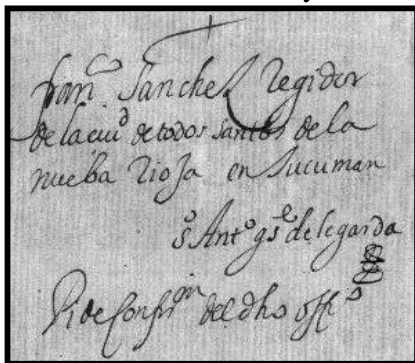 fran^co Sanchez regidor
de la ciu^d de todos santos de la
nueba rioja en tucuman
s^o Ant^o g^s de legarda
Pide Confir^on del dho offi^o